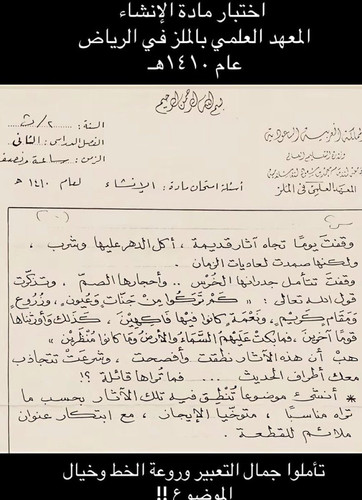 اختبار مادة الإنشاء
المعهد العلمي بالملز في الرياض
عام ١٤١٠هـ
بسم الله الرحمن الرحيم
المملكة العربية السعودية
وزارة التعليم العالي
المعهد العلمي في الملز
السنة: ٢/ث
الفصل الدراسي: الثاني
الزمن: ساعة ونصف
أسئلة امتحان مادة: الإنشاء لعام ١٤١٠ هـ
س
وقفتَ يومًا تجاه آثار قديمة، أكل الدهر عليها وشرب،
ولكنها صمدت لعاديات الزمان.
وقفتَ تتأمل جدرانها الخُرْس.. وأحجارها الصمّ. وتذكّرت
قول الله تعالى: « كَمْ تَرَكُوا مِنْ جَنَّاتٍ وَعُيُونٍ، وَزُرُوعٍ
وَمَقَامٍ كَرِيمٍ، وَنَعْمَةٍ كَانُوا فِيهَا فَاكِهِينَ، كَذَلِكَ وَأَوْرَثْنَاهَا
قَوْمًا آخَرِينَ، فَمَا بَكَتْ عَلَيْهِمُ السَّمَاءُ وَالْأَرْضُ وَمَا كَانُوا مُنْظَرِينَ »
هبْ أن هذه الآثار نطقت وأفصحت، وشرعت تتجاذب
معك أطراف الحديث .... فما تُراها قائلة ؟!
* أنشئ موضوعًا تُنْطِق فيه تلك الآثار بحسب ما
تراه مناسبًا، متوخّيا الإيجاز، مع ابتكار عنوان
ملائم للقطعة.
تأملوا جمال التعبير وروعة الخط وخيال
الموضوع !!